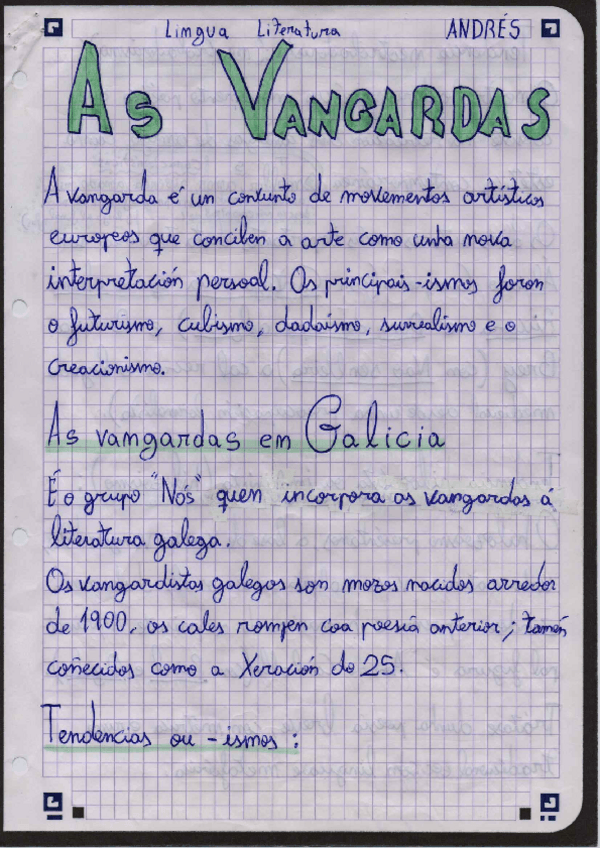 Lingua Literatura ANDRÉS
As Vangardas
A vangarda é un conxunto de movementos artísticos
europeos que conciben a arte como unha nova
interpretación persoal. Os principais -ismos foron
o futurismo, cubismo, dadaísmo, surrealismo e o
creacionismo.
As vangardas en Galicia
É o grupo "Nós" quen incorpora as vangardas á
literatura galega.
Os vangardistas galegos son mozos nacidos arredor
de 1900, os cales rompen coa poesía anterior; tamén
coñecidos como a Xeración do 25.
Tendencias ou -ismos: